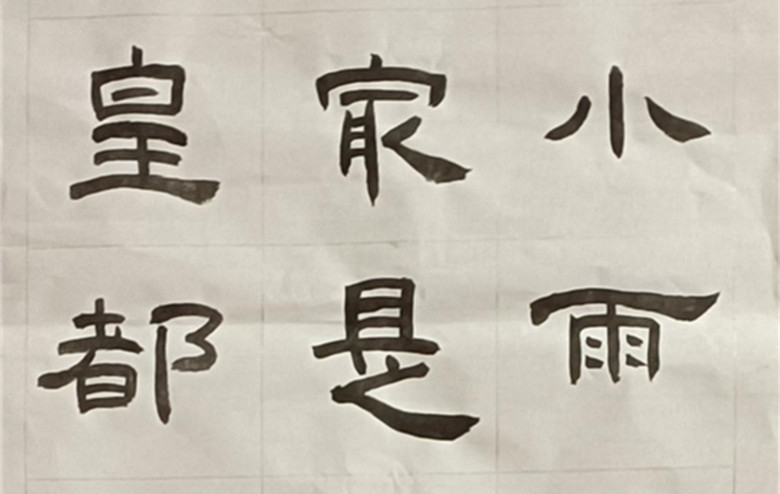 小雨
最是
皇都